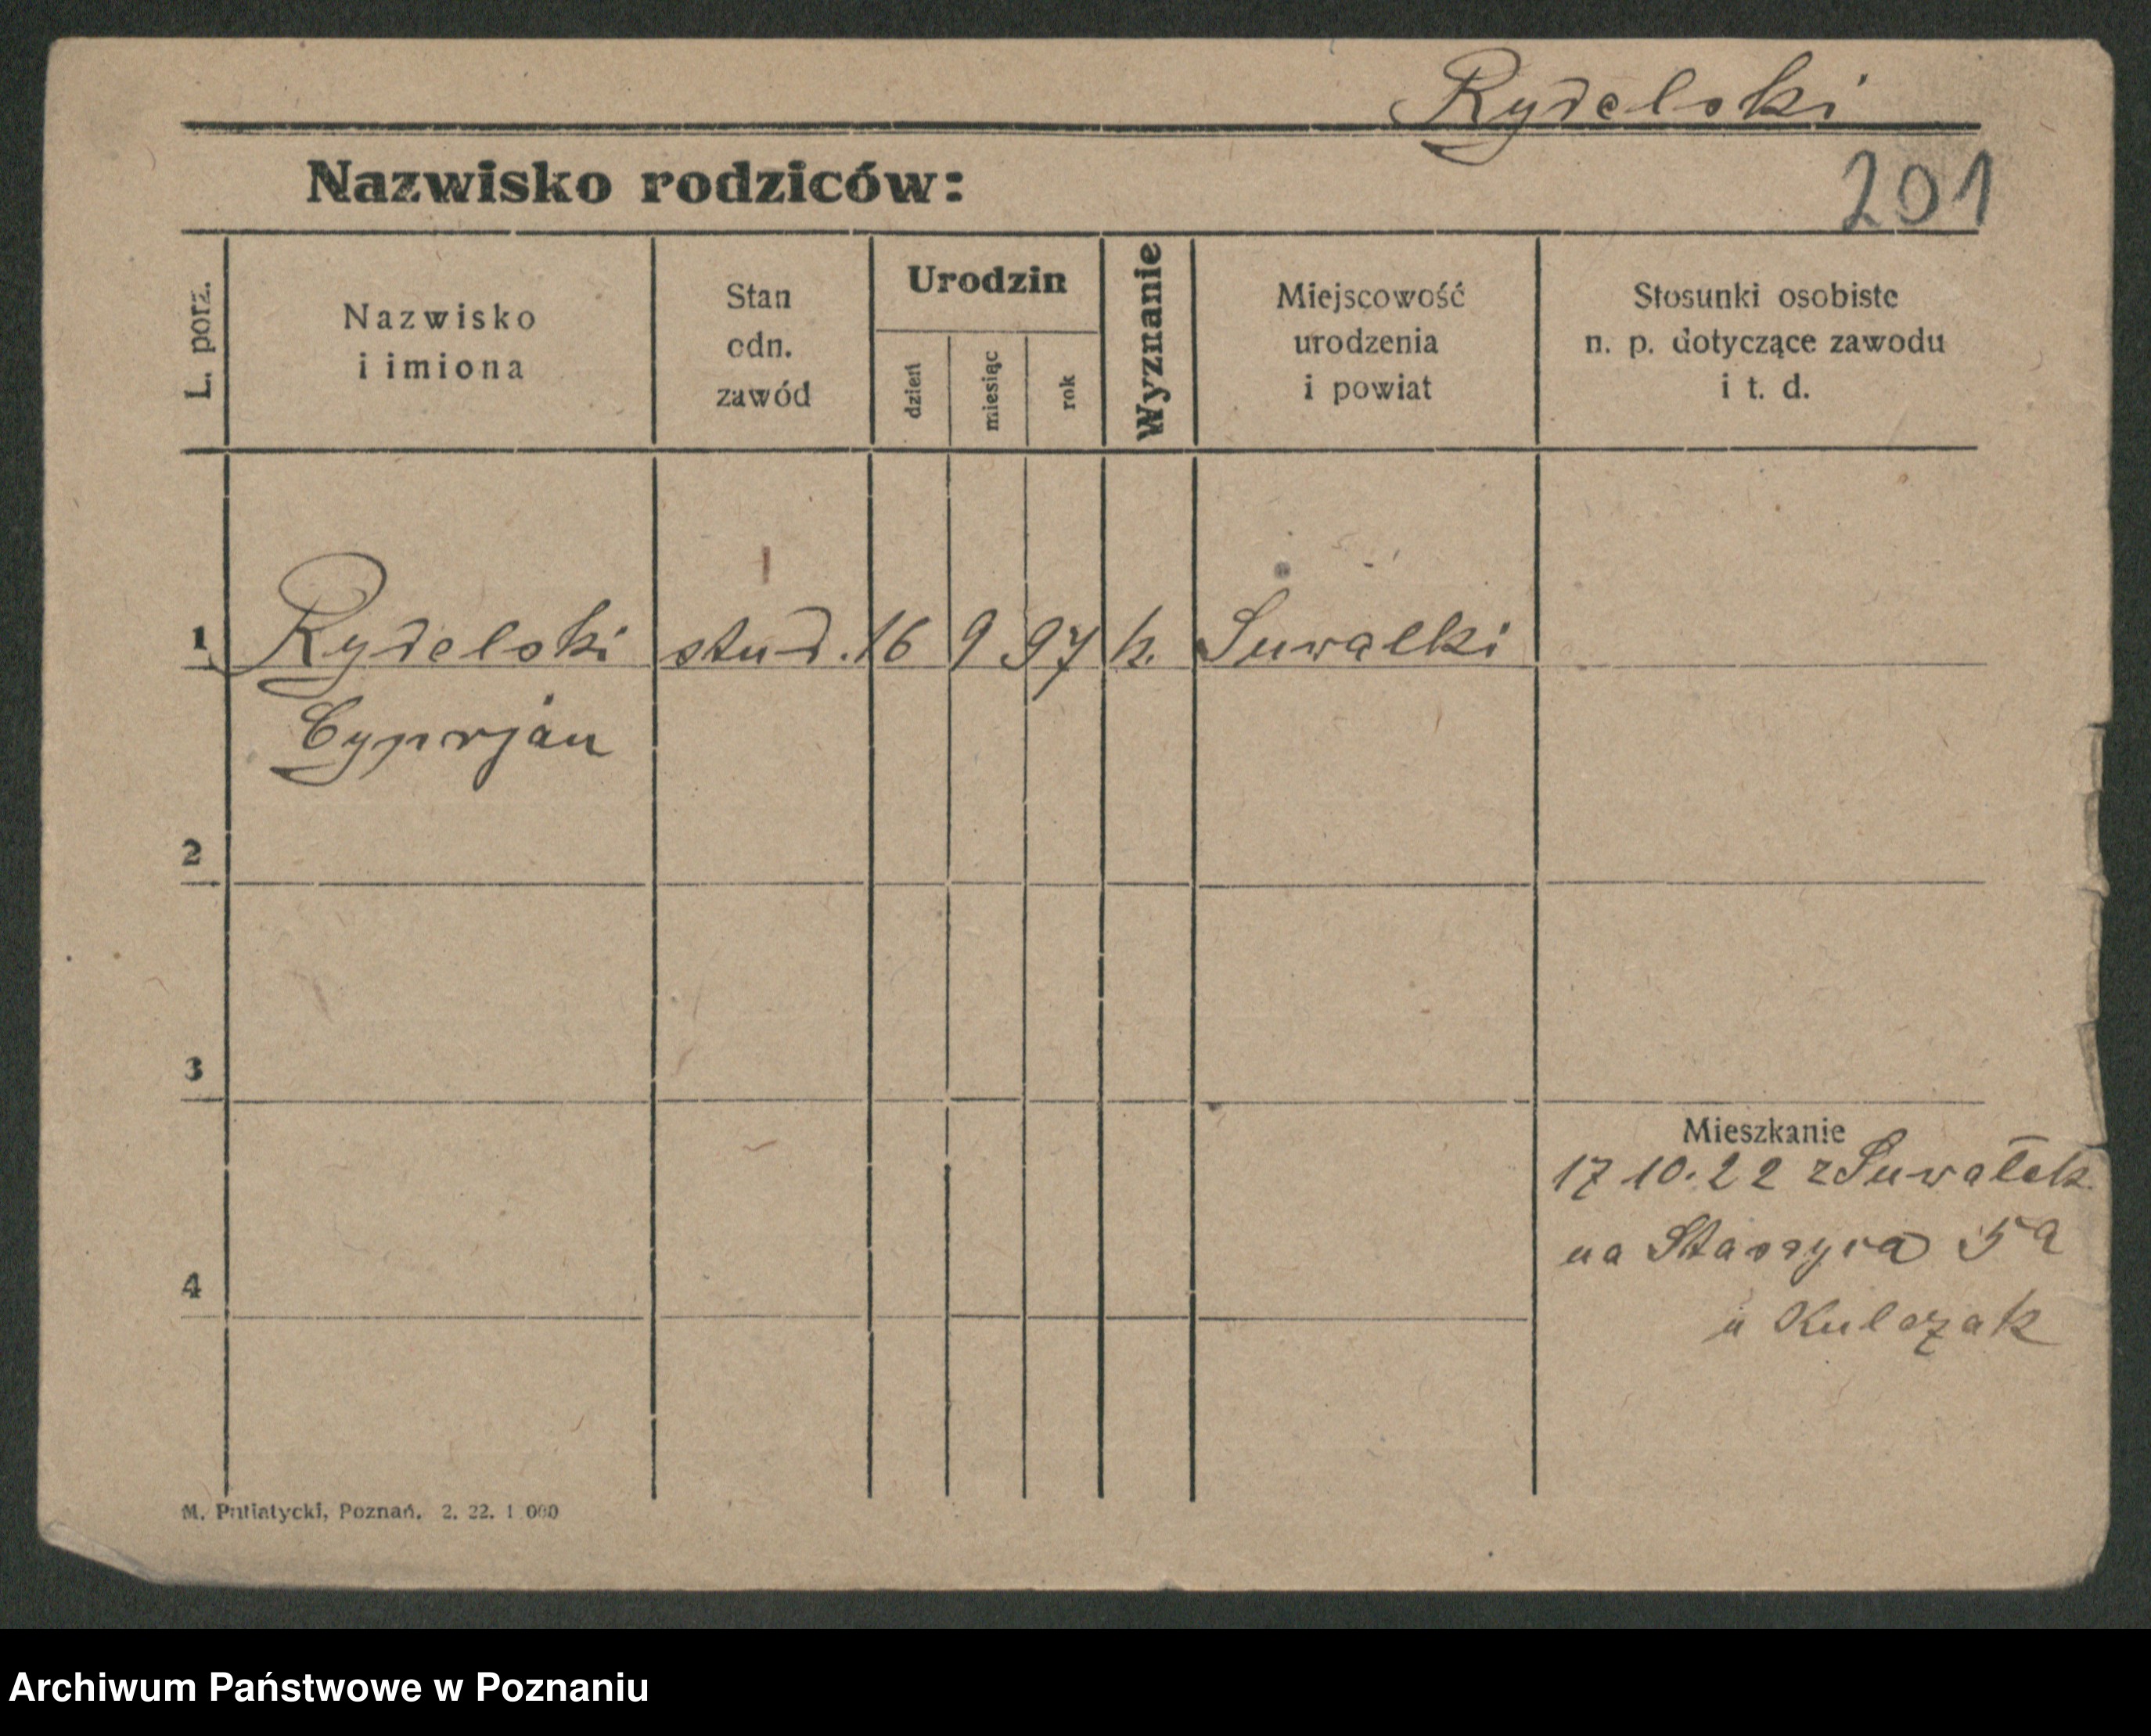 Rydelski
Nazwisko rodziców:
201
L. porz.
Nazwisko
i imiona
Stan
odn.
zawód
Urodzin
dzień
miesiąc
rok
Wyznanie
Miejscowość
urodzenia
i powiat
Stosunki osobiste
n. p. dotyczące zawodu
i t. d.
1 Rydelski stud. 16 9 97 k. Suwałki
Cyprjan
2
3
Mieszkanie
17 10.22 z Suwałek
na Staszyca 5a
4
u Kulczak
M. Putiatycki, Poznań, 2. 22. 1 000
Archiwum Państwowe w Poznaniu